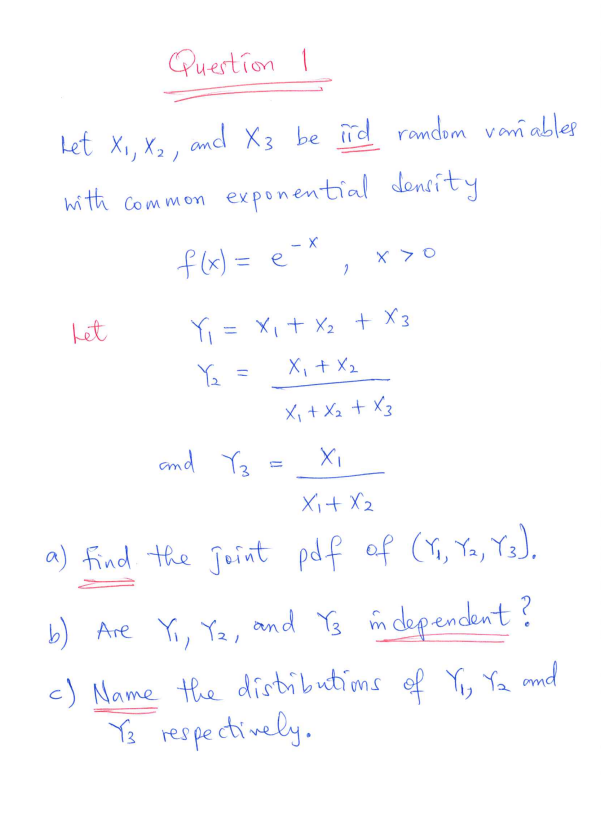 Question 1
Let X₁, X₂, and X₃ be iid random variables
with common exponential density
f(x) = e^{-x}, x > 0
Let Y₁ = X₁ + X₂ + X₃
Y₂ = (X₁ + X₂) / (X₁ + X₂ + X₃)
and Y₃ = X₁ / (X₁ + X₂)
a) find the joint pdf of (Y₁, Y₂, Y₃).
b) Are Y₁, Y₂, and Y₃ independent?
c) Name the distributions of Y₁, Y₂ and
Y₃ respectively.